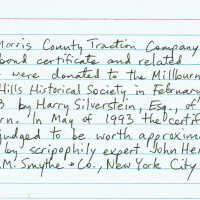 Morris County Traction Company
bond certificate and related
were donated to the Millburn
Hills Historical Society in February
3 by Harry Silverstein, Esq., of
rn. In May of 1993 the certif
judged to be worth approxim
by scripophily expert John Her
M. Smythe & Co., New York City